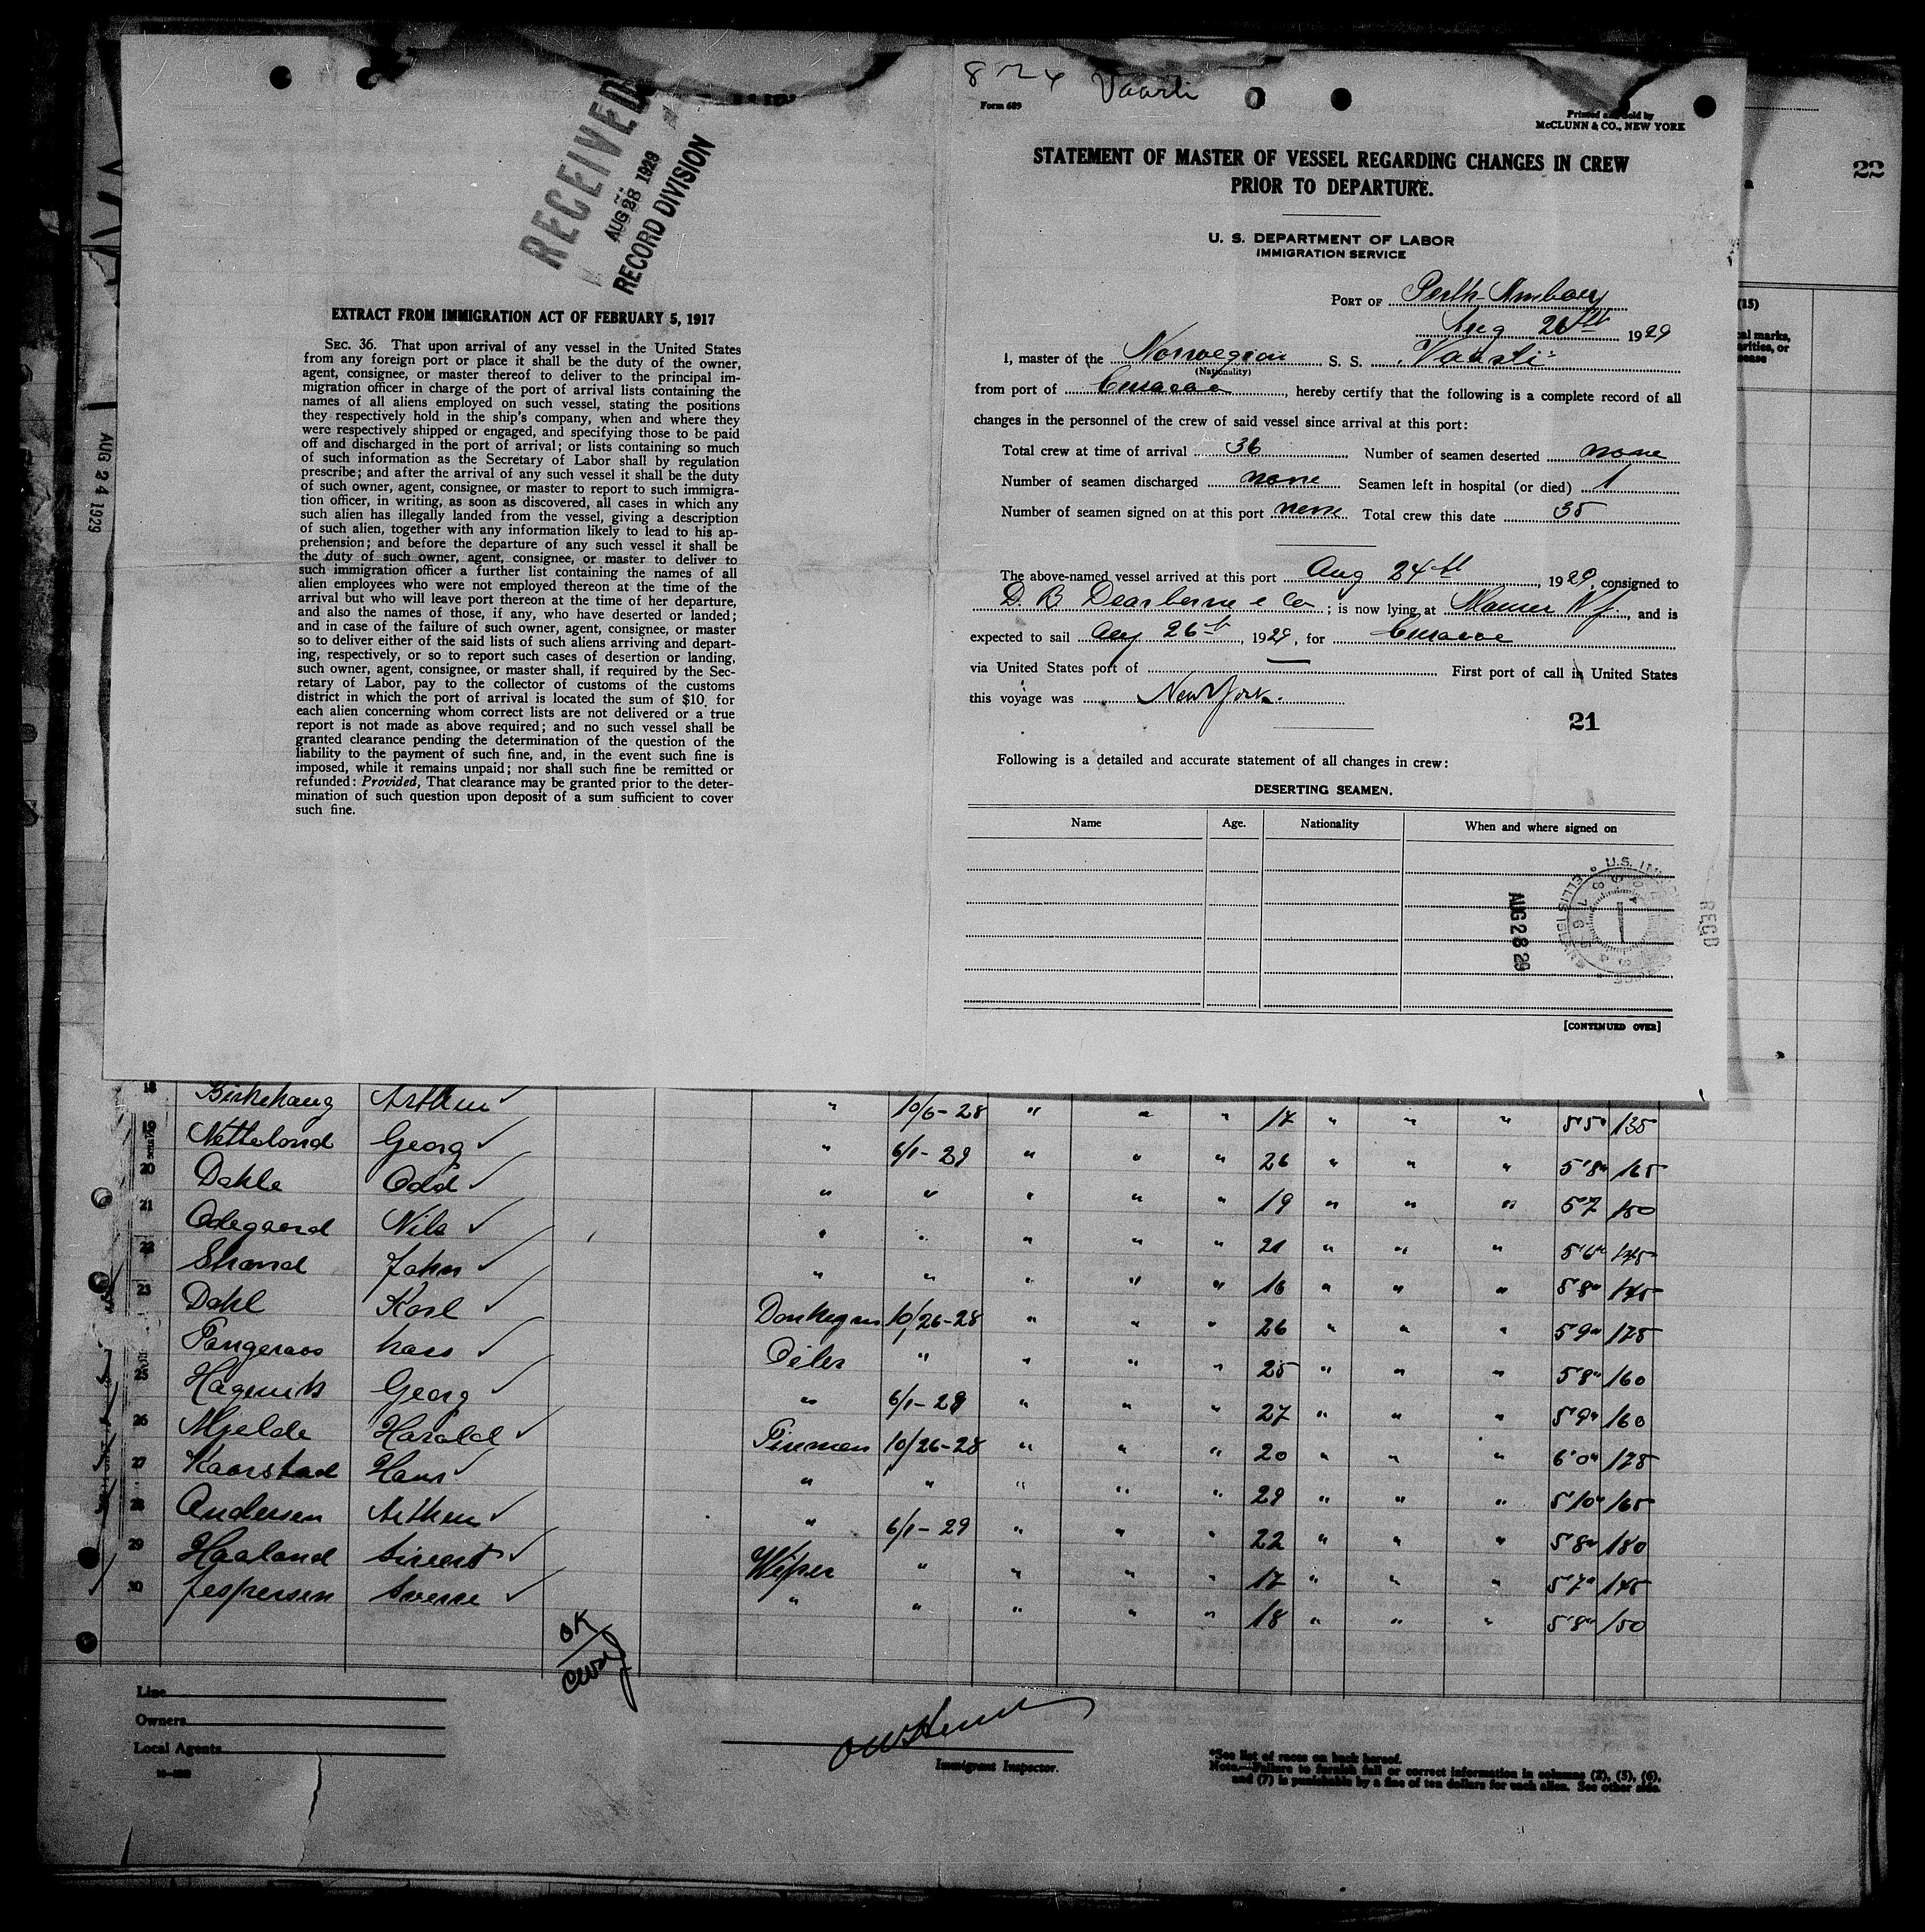 RECEIVED
AUG 28 1929
RECORD DIVISION
EXTRACT FROM IMMIGRATION ACT OF FEBRUARY 5, 1917
SEC. 36. That upon arrival of any vessel in the United States
from any foreign port or place it shall be the duty of the owner,
agent, consignee, or master thereof to deliver to the principal im-
migration officer in charge of the port of arrival lists containing the
names of all aliens employed on such vessel, stating the positions
they respectively hold in the ship's company, when and where they
were respectively shipped or engaged, and specifying those to be paid
off and discharged in the port of arrival; or lists containing so much
of such information as the Secretary of Labor shall by regulation
prescribe; and after the arrival of any such vessel it shall be the duty
of such owner, agent, consignee, or master to report to such immigra-
tion officer, in writing, as soon as discovered, all cases in which any
such alien has illegally landed from the vessel, giving a description
of such alien, together with any information likely to lead to his ap-
prehension; and before the departure of any such vessel it shall be
the duty of such owner, agent, consignee, or master to deliver to
such immigration officer a further list containing the names of all
alien employees who were not employed thereon at the time of the
arrival but who will leave port thereon at the time of her departure,
and also the names of those, if any, who have deserted or landed;
and in case of the failure of such owner, agent, consignee, or master
so to deliver either of the said lists of such aliens arriving and depart-
ing, respectively, or so to report such cases of desertion or landing,
such owner, agent, consignee, or master shall, if required by the Sec-
retary of Labor, pay to the collector of customs of the customs
district in which the port of arrival is located the sum of $10 for
each alien concerning whom correct lists are not delivered or a true
report is not made as above required; and no such vessel shall be
granted clearance pending the determination of the question of the
liability to the payment of such fine, and, in the event such fine is
imposed, while it remains unpaid; nor shall such fine be remitted or
refunded: Provided, That clearance may be granted prior to the deter-
mination of such question upon deposit of a sum sufficient to cover
such fine.
AUG 24 1929
Vaarli
Form 689
Printed and Sold by
McCLUNN & CO., NEW YORK
22
STATEMENT OF MASTER OF VESSEL REGARDING CHANGES IN CREW
PRIOR TO DEPARTURE.
U. S. DEPARTMENT OF LABOR
IMMIGRATION SERVICE
PORT OF Perth-Amboy
Aug 26th 1929
I, master of the Norwegian S. S. "Vaarli"
(Nationality)
from port of Curacao, hereby certify that the following is a complete record of all
changes in the personnel of the crew of said vessel since arrival at this port:
Total crew at time of arrival 36 Number of seamen deserted none
Number of seamen discharged none Seamen left in hospital (or died) 1
Number of seamen signed on at this port none Total crew this date 35
The above-named vessel arrived at this port Aug 24th, 1929, consigned to
D. B. Dearborne & Co; is now lying at Maurer N.J., and is
expected to sail Aug 26th, 1929, for Curacao
via United States port of — First port of call in United States
this voyage was New York.
21
Following is a detailed and accurate statement of all changes in crew:
DESERTING SEAMEN.
Name Age. Nationality When and where signed on
AUG 28 29
RECD
[CONTINUED OVER]
(15)
18 Birkehaug Arthur " 10/6-28 " " " 17 " " " 5'5" 135
19 Netteland Georg " 6/1-29 " " " 26 " " " 5'8" 165
20 Dahle Odd " " " " " 19 " " " 5'7 150
21 Odegaard Nils " " " " " 21 " " " 5'6" 145
22 Strand John " " " " " 16 " " " 5'8" 145
23 Dahl Karl Donkeyman 10/26-28 " " " 26 " " " 5'9" 175
Tangeraas Lars Oiler " " " " 25 " " " 5'8" 160
25 Hagevik Georg " 6/1-29 " " " 27 " " " 5'9" 160
26 Mjelde Harald Firemen 10/26-28 " " " 20 " " " 6'0" 175
27 Kaarstad Hans " " " " " 29 " " " 5'10" 165
28 Andersen Arthur " 6/1-29 " " " 22 " " " 5'8" 180
29 Haaland Sivert Wiper " " " " 17 " " " 5'7" 145
30 Jespersen Sverre " " " " " 18 " " " 5'8" 150
OK
Line
Owners
Local Agents
Immigrant Inspector.
*See list of races on back hereof.
Note.—Failure to furnish full or correct information in columns (2), (5), (6),
and (7) is punishable by a fine of ten dollars for each alien. See other side.